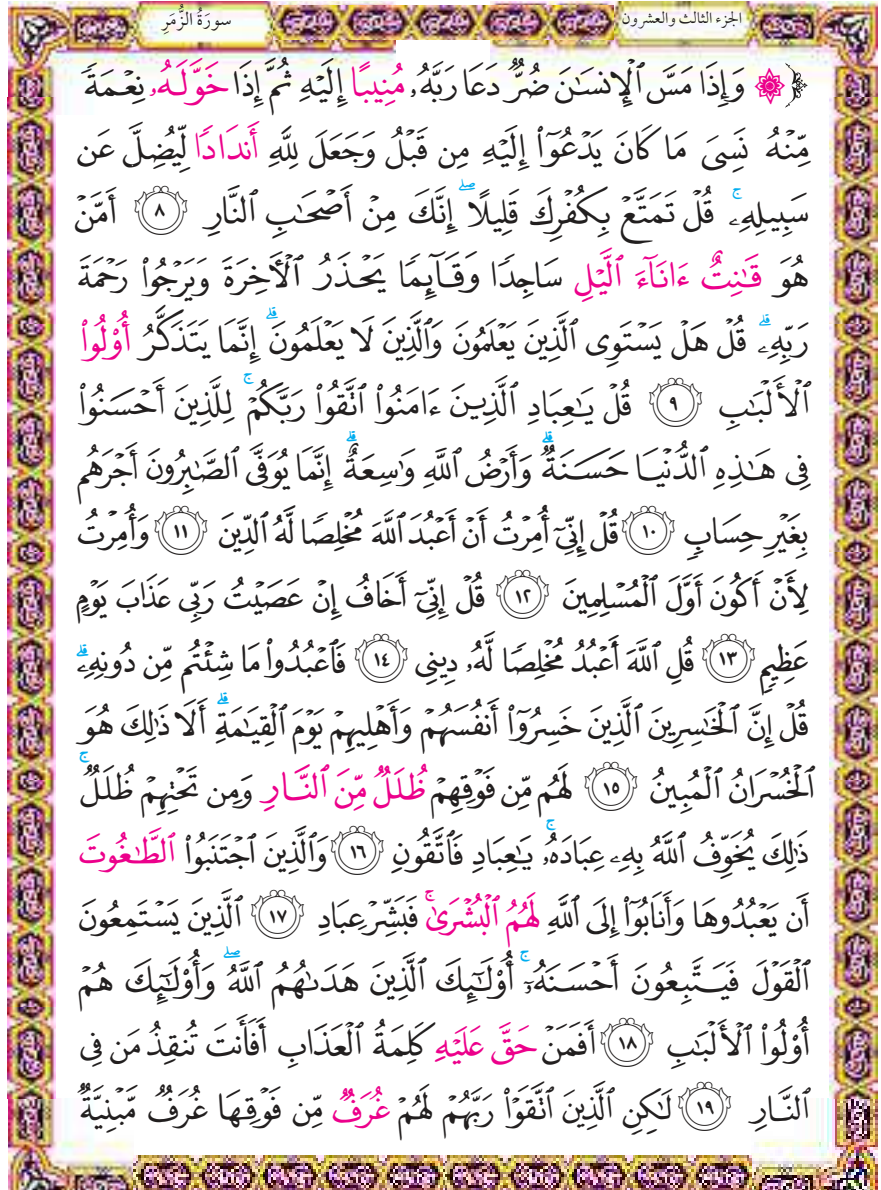 الجزء الثالث والعشرون
سورَةُ الزُّمَرِ
﴿ ۞ وَإِذَا مَسَّ ٱلْإِنسَـٰنَ ضُرٌّ دَعَا رَبَّهُۥ مُنِيبًا إِلَيْهِ ثُمَّ إِذَا خَوَّلَهُۥ نِعْمَةً
مِّنْهُ نَسِىَ مَا كَانَ يَدْعُوٓا۟ إِلَيْهِ مِن قَبْلُ وَجَعَلَ لِلَّهِ أَندَادًا لِّيُضِلَّ عَن
سَبِيلِهِۦ ۚ قُلْ تَمَتَّعْ بِكُفْرِكَ قَلِيلًا ۖ إِنَّكَ مِنْ أَصْحَـٰبِ ٱلنَّارِ ﴿٨﴾ أَمَّنْ
هُوَ قَـٰنِتٌ ءَانَآءَ ٱلَّيْلِ سَاجِدًا وَقَآئِمًا يَحْذَرُ ٱلْـَٔاخِرَةَ وَيَرْجُوا۟ رَحْمَةَ
رَبِّهِۦ ۗ قُلْ هَلْ يَسْتَوِى ٱلَّذِينَ يَعْلَمُونَ وَٱلَّذِينَ لَا يَعْلَمُونَ ۗ إِنَّمَا يَتَذَكَّرُ أُو۟لُوا۟
ٱلْأَلْبَـٰبِ ﴿٩﴾ قُلْ يَـٰعِبَادِ ٱلَّذِينَ ءَامَنُوا۟ ٱتَّقُوا۟ رَبَّكُمْ ۚ لِلَّذِينَ أَحْسَنُوا۟
فِى هَـٰذِهِ ٱلدُّنْيَا حَسَنَةٌ ۗ وَأَرْضُ ٱللَّهِ وَٰسِعَةٌ ۗ إِنَّمَا يُوَفَّى ٱلصَّـٰبِرُونَ أَجْرَهُم
بِغَيْرِ حِسَابٍ ﴿١٠﴾ قُلْ إِنِّىٓ أُمِرْتُ أَنْ أَعْبُدَ ٱللَّهَ مُخْلِصًا لَّهُ ٱلدِّينَ ﴿١١﴾ وَأُمِرْتُ
لِأَنْ أَكُونَ أَوَّلَ ٱلْمُسْلِمِينَ ﴿١٢﴾ قُلْ إِنِّىٓ أَخَافُ إِنْ عَصَيْتُ رَبِّى عَذَابَ يَوْمٍ
عَظِيمٍ ﴿١٣﴾ قُلِ ٱللَّهَ أَعْبُدُ مُخْلِصًا لَّهُۥ دِينِى ﴿١٤﴾ فَٱعْبُدُوا۟ مَا شِئْتُم مِّن دُونِهِۦ ۗ
قُلْ إِنَّ ٱلْخَـٰسِرِينَ ٱلَّذِينَ خَسِرُوٓا۟ أَنفُسَهُمْ وَأَهْلِيهِمْ يَوْمَ ٱلْقِيَـٰمَةِ ۗ أَلَا ذَٰلِكَ هُوَ
ٱلْخُسْرَانُ ٱلْمُبِينُ ﴿١٥﴾ لَهُم مِّن فَوْقِهِمْ ظُلَلٌ مِّنَ ٱلنَّارِ وَمِن تَحْتِهِمْ ظُلَلٌ ۚ
ذَٰلِكَ يُخَوِّفُ ٱللَّهُ بِهِۦ عِبَادَهُۥ ۚ يَـٰعِبَادِ فَٱتَّقُونِ ﴿١٦﴾ وَٱلَّذِينَ ٱجْتَنَبُوا۟ ٱلطَّـٰغُوتَ
أَن يَعْبُدُوهَا وَأَنَابُوٓا۟ إِلَى ٱللَّهِ لَهُمُ ٱلْبُشْرَىٰ ۚ فَبَشِّرْ عِبَادِ ﴿١٧﴾ ٱلَّذِينَ يَسْتَمِعُونَ
ٱلْقَوْلَ فَيَتَّبِعُونَ أَحْسَنَهُۥٓ ۚ أُو۟لَـٰٓئِكَ ٱلَّذِينَ هَدَىٰهُمُ ٱللَّهُ ۖ وَأُو۟لَـٰٓئِكَ هُمْ
أُو۟لُوا۟ ٱلْأَلْبَـٰبِ ﴿١٨﴾ أَفَمَنْ حَقَّ عَلَيْهِ كَلِمَةُ ٱلْعَذَابِ أَفَأَنتَ تُنقِذُ مَن فِى
ٱلنَّارِ ﴿١٩﴾ لَـٰكِنِ ٱلَّذِينَ ٱتَّقَوْا۟ رَبَّهُمْ لَهُمْ غُرَفٌ مِّن فَوْقِهَا غُرَفٌ مَّبْنِيَّةٌ